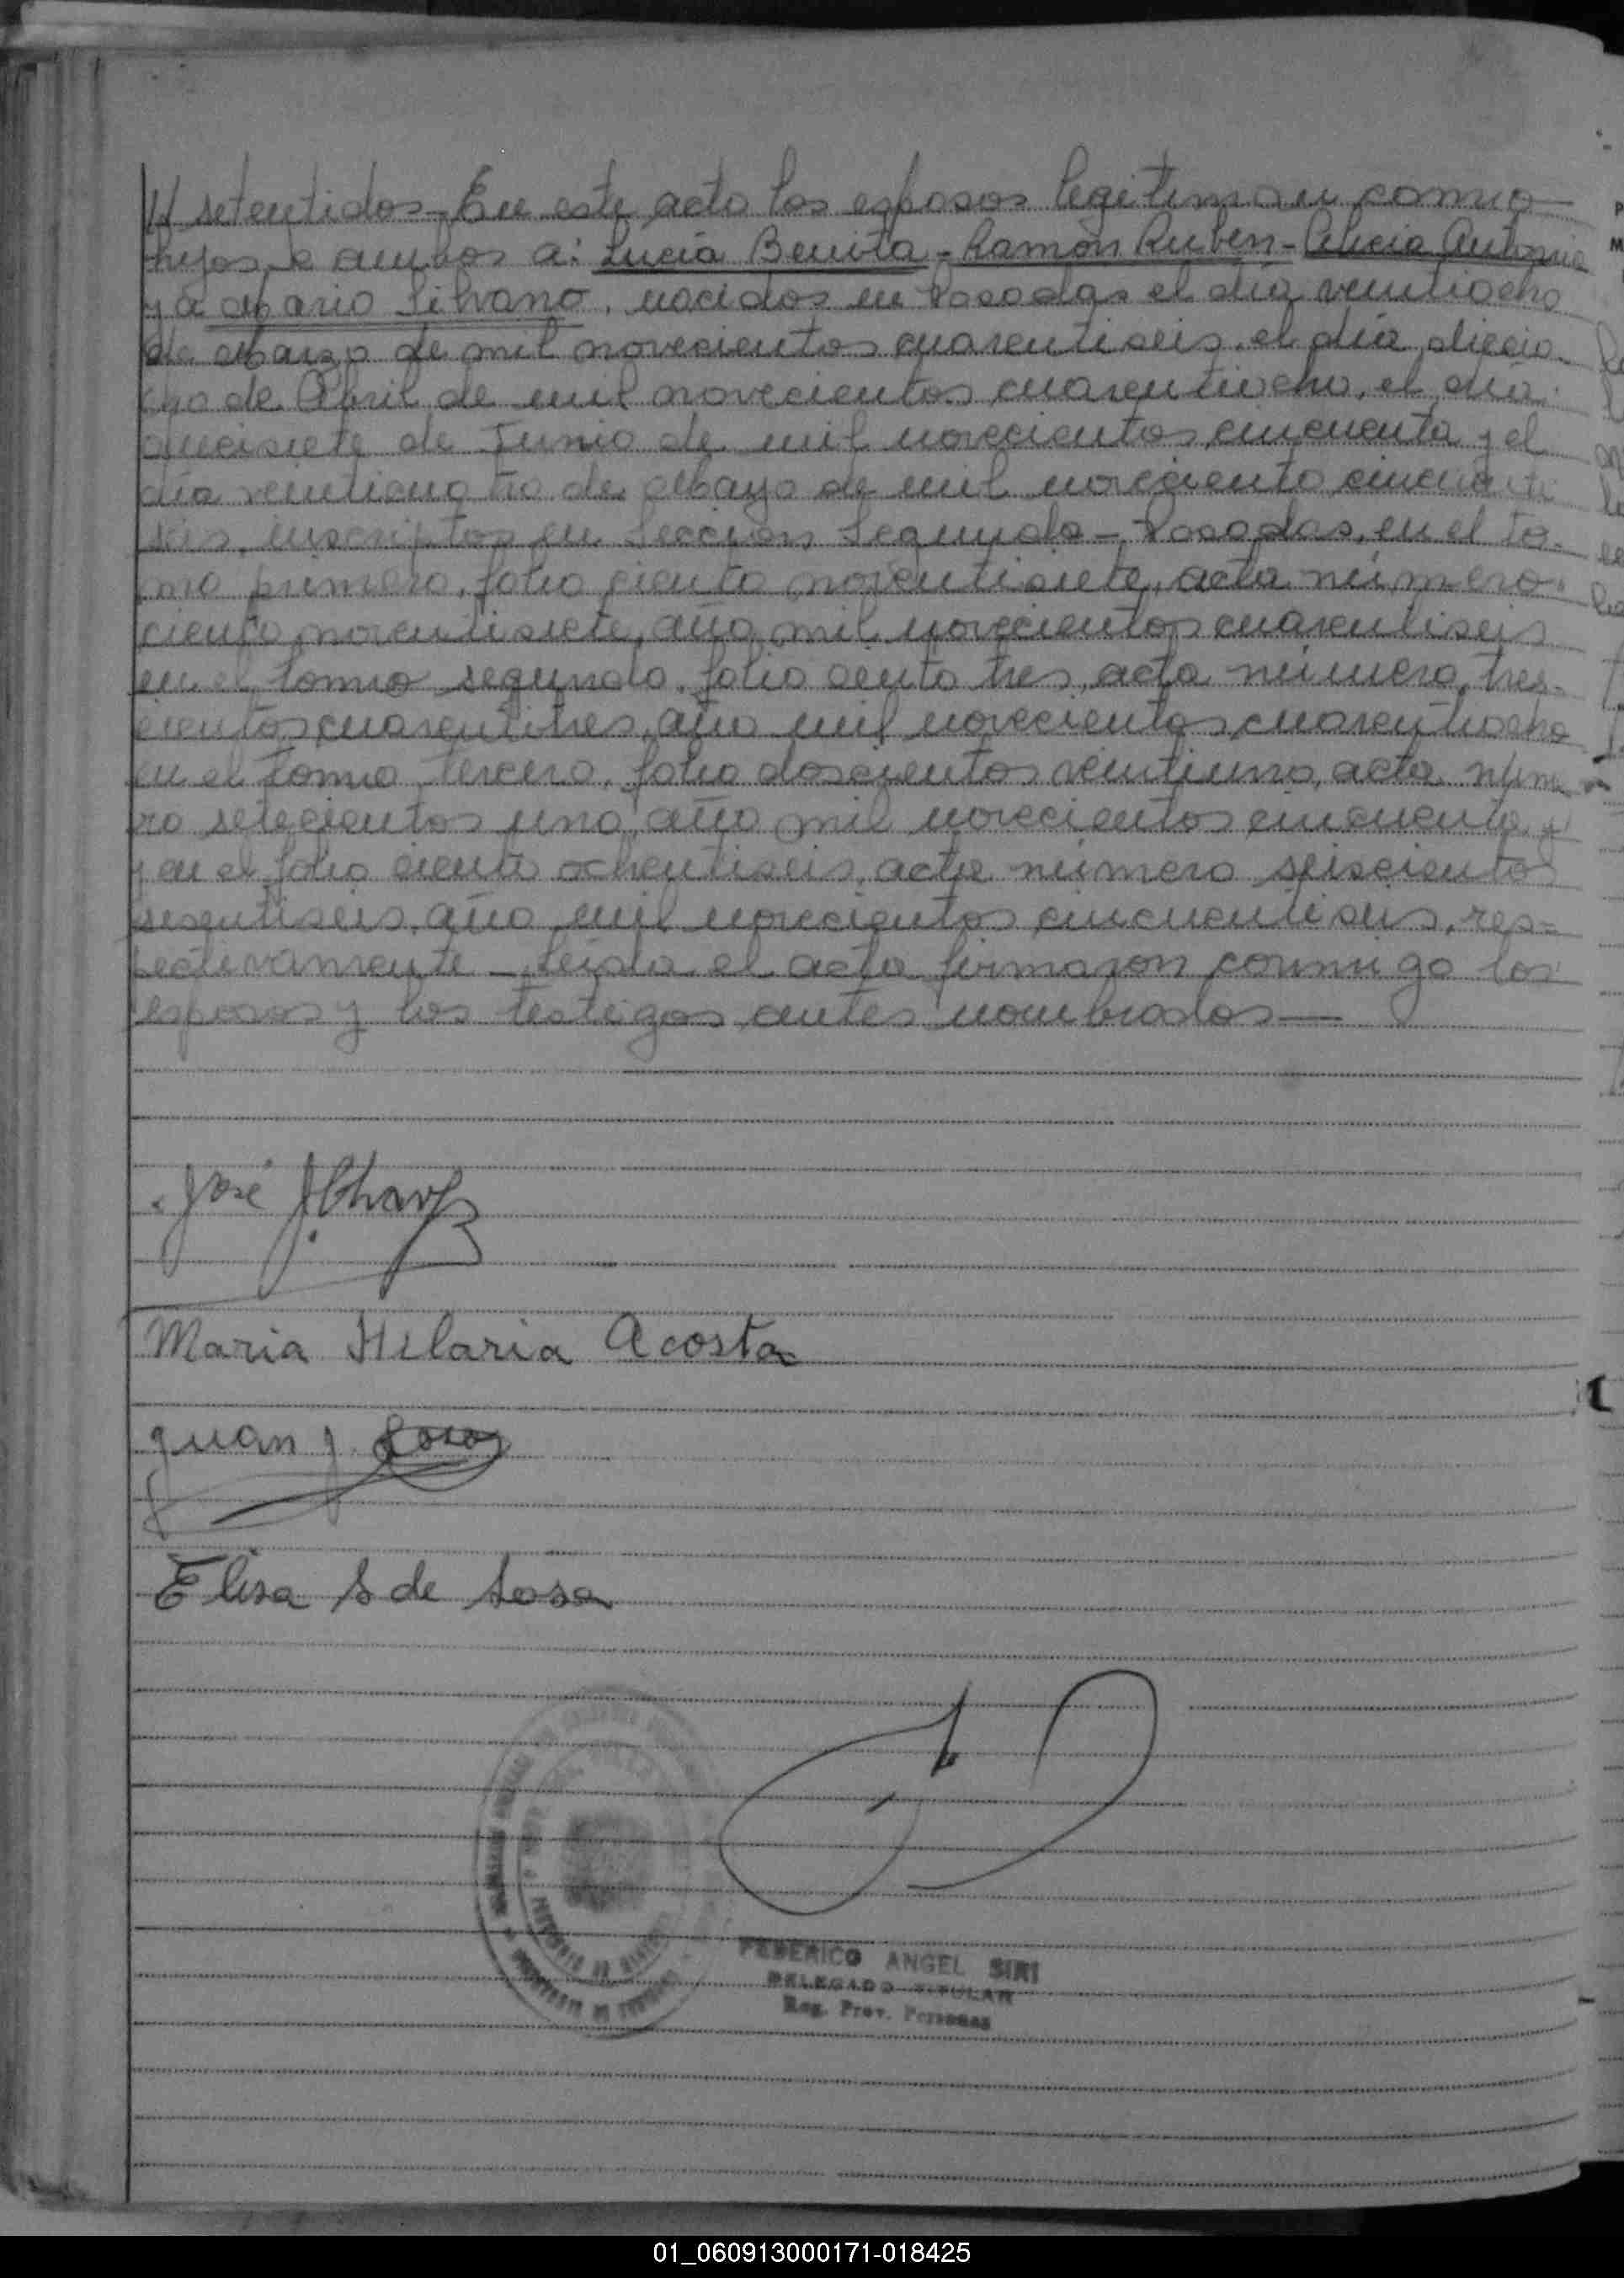 // setentidos - En este acto los esposos legitiman como
hijos de ambos a: Lucia Benita - Ramón Ruben - Alicia Antonia
y a Mario Silvano, nacidos en Posadas el día veintiocho
de Marzo de mil novecientos cuarentiseis, el día diecio-
cho de Abril de mil novecientos cuarentiocho, el día
diecisiete de Junio de mil novecientos cincuenta y el
día veinticuatro de Mayo de mil noveciento cincuenti
seis, inscriptos en Sección Segunda - Posadas, en el to-
mo primero, folio ciento noventisiete, acta número
ciento noventisiete, año mil novecientos cuarentiseis
en el tomo segundo, folio ciento tres, acta número tres-
cientos cuarentitres, año mil novecientos cuarentiocho
en el tomo tercero, folio doscientos veintiuno, acta núme
ro setecientos uno, año mil novecientos cincuenta y
y en el folio ciento ochentiseis, acta número seiscientos
sesentiseis, año mil novecientos cincuentiseis, res-
pectivamente - Leída el acta firmaron conmigo los
esposos y los testigos antes nombrados —
José J. Chavez
Maria Hilaria Acosta
Juan J. Sosa
Elisa S de Sosa
FEDERICO ANGEL SIRI
DELEGADO TITULAR
Reg. Prov. Personas
01_060913000171-018425